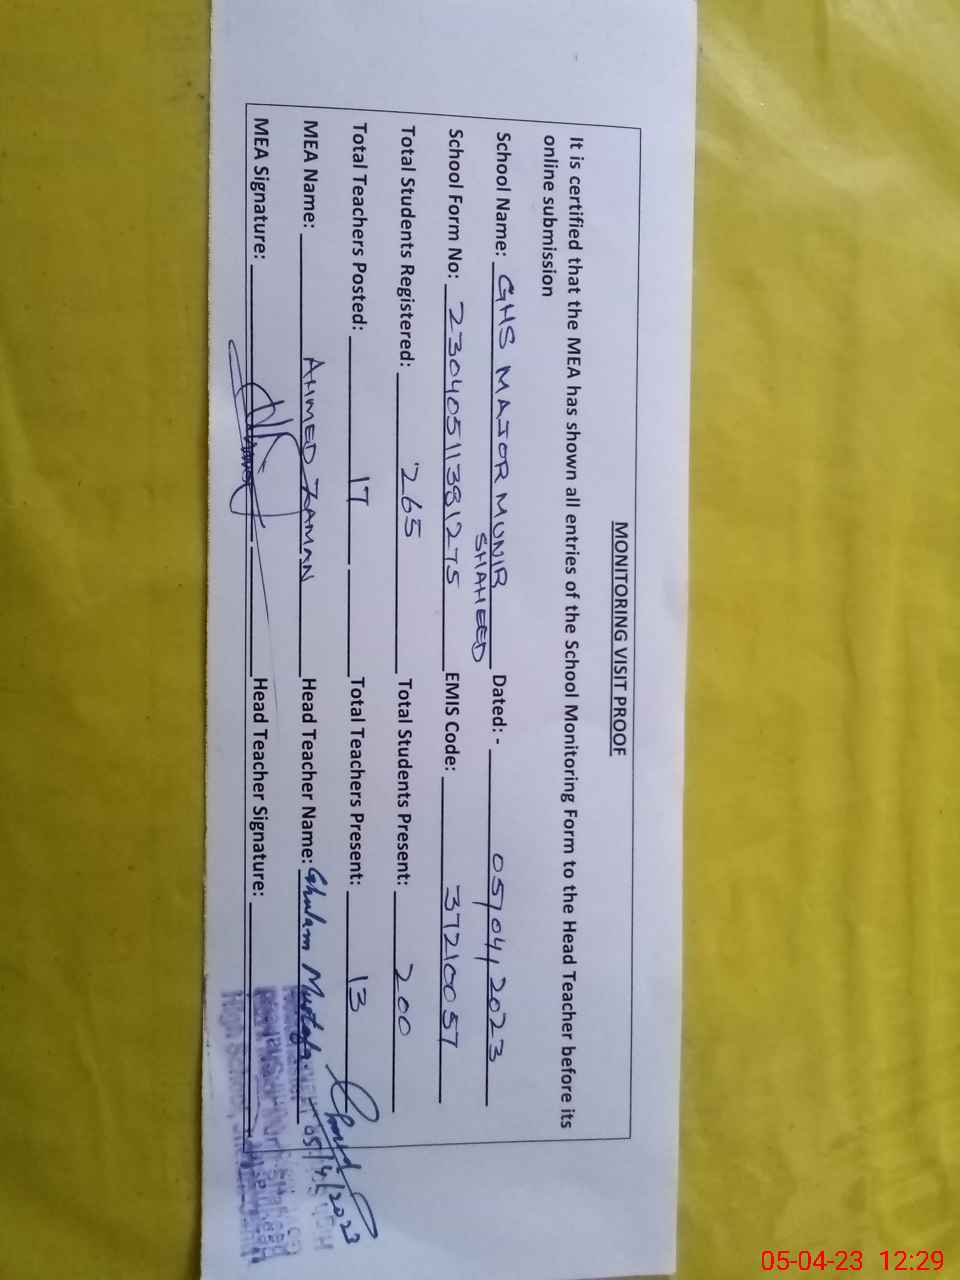 MONITORING VISIT PROOF
It is certified that the MEA has shown all entries of the School Monitoring Form to the Head Teacher before its
online submission
School Name: GHS MAJOR MUNIR SHAHEED Dated: - 05/04/2023
School Form No: 23040511381275 EMIS Code: 37210057
Total Students Registered: 265 Total Students Present: 200
Total Teachers Posted: 17 Total Teachers Present: 13
MEA Name: AHMED ZAMAN Head Teacher Name: Ghulam Mustafa
MEA Signature: Head Teacher Signature:
05/4/2023
High School
05-04-23 12:29